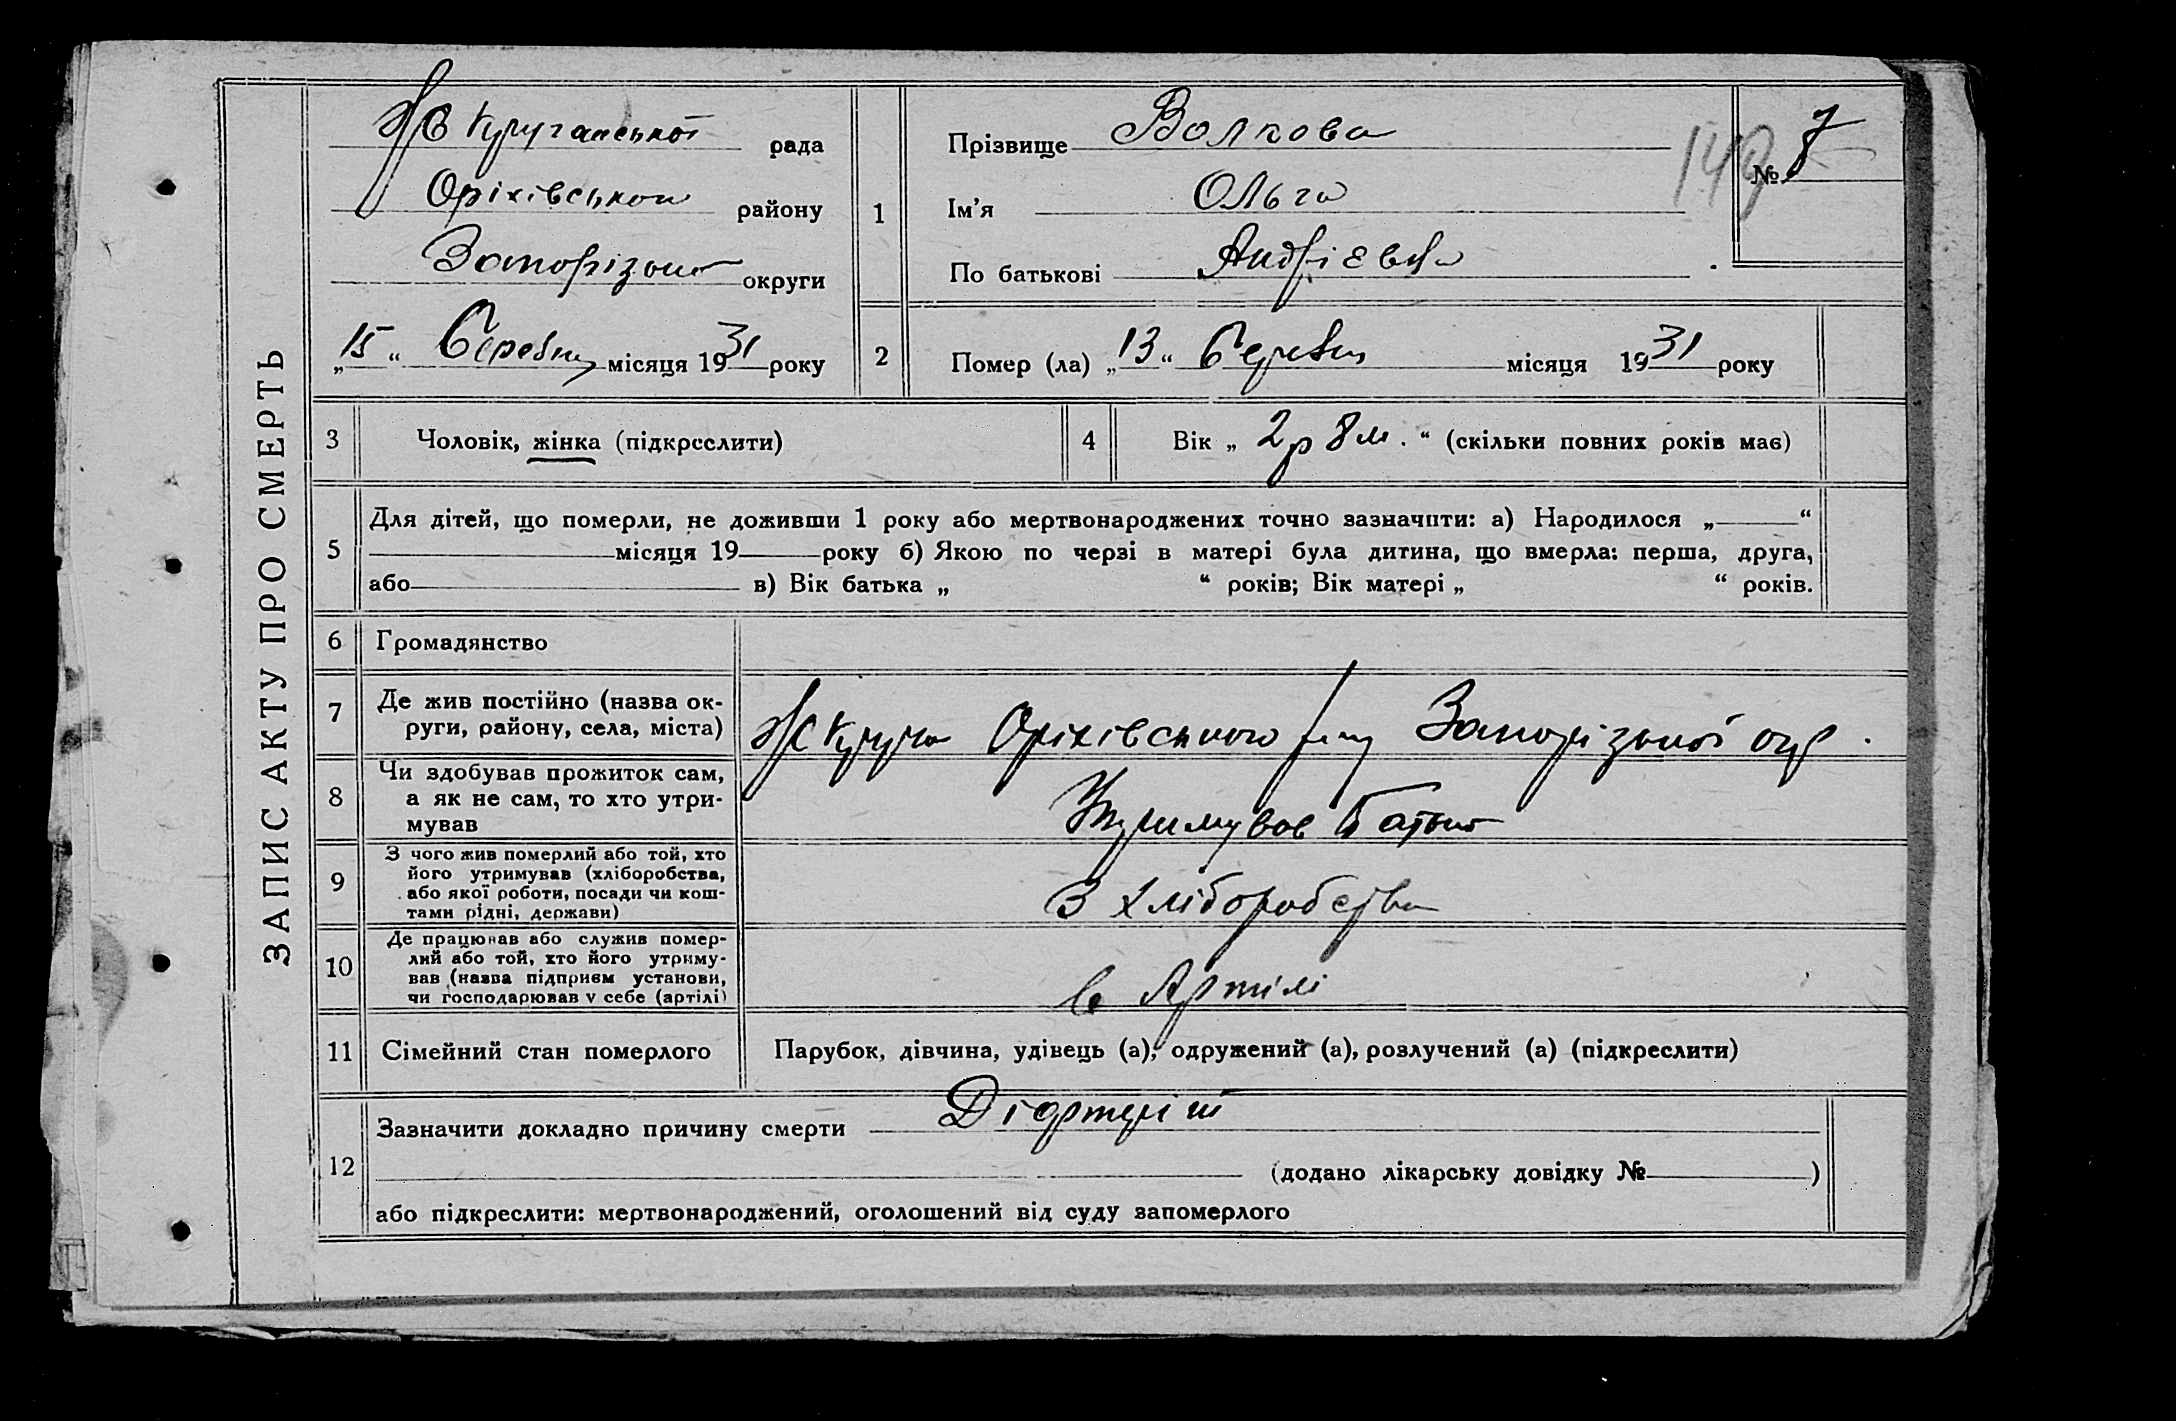 ЗАПИС АКТУ ПРО СМЕРТЬ
рада
Оріхівського району
Запорізької округи
„15“ Серпня місяця 1931 року
1
Прізвище Волкова
Ім’я Ольга
По батькові Андрієвна
149
№ 7
2
Помер (ла) „13“ Серпня місяця 1931 року
3 Чоловік, жінка (підкреслити)
4 Вік „2р 8м.“ (скільки повних років має)
5
Для дітей, що померли, не доживши 1 року або мертвонароджених точно зазначити: а) Народилося „ “
місяця 19 року б) Якою по черзі в матері була дитина, що вмерла: перша, друга,
або в) Вік батька „ “ років; Вік матері „ “ років.
6 Громадянство
7 Де жив постійно (назва ок-
руги, району, села, міста)
Оріхівського р-ну Запорізької окр.
8 Чи здобував прожиток сам,
а як не сам, то хто утри-
мував
Утримував Батько
9 З чого жив померлий або той, хто
його утримував (хліборобства,
або якої роботи, посади чи кош-
тами рідні, держави)
З хліборобства
10 Де працював або служив помер-
лий або той, хто його утриму-
вав (назва підприєм установи,
чи господарював у себе (артілі)
в Артілі
11 Сімейний стан померлого Парубок, дівчина, удівець (а), одружений (а), розлучений (а) (підкреслити)
12
Зазначити докладно причину смерти Діфтеріт
(додано лікарську довідку № )
або підкреслити: мертвонароджений, оголошений від суду запомерлого